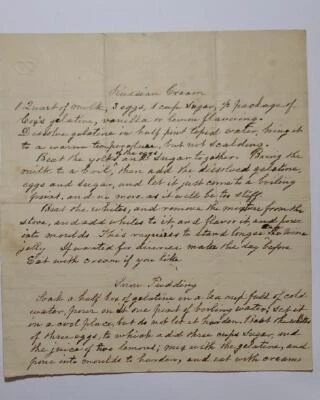 Russian Cream
1 Quart of milk, 3 eggs, 1 cup sugar, ½ package of
Cox's gelatine, vanilla or lemon flavoring.
Dissolve gelatine in half pint tepid water, bring it
to a warm temperature, but not scalding.
Beat the yolks of the eggs and sugar together. Bring the
milk to a boil, then add the dissolved gelatine,
eggs and sugar, and let it just come to a boiling
point, and no more as it will be too stiff.
Beat the whites, and remove the from the
stove, and add whites to it and flavor it, and pour
into moulds. This requires to stand longer than wine
jelly. If wanted for dinner make the day before
Eat with cream if you like.
Snow Pudding
Soak a half box of gelatine in a tea cup full of cold
water, pour on it one pint of boiling water, set it
on a cool place, but do not let it harden. Beat the whites
of three eggs, to which add three cups sugar, and
the juice of two lemons; mix with the gelatine, and
pour into moulds to harden, and eat with cream